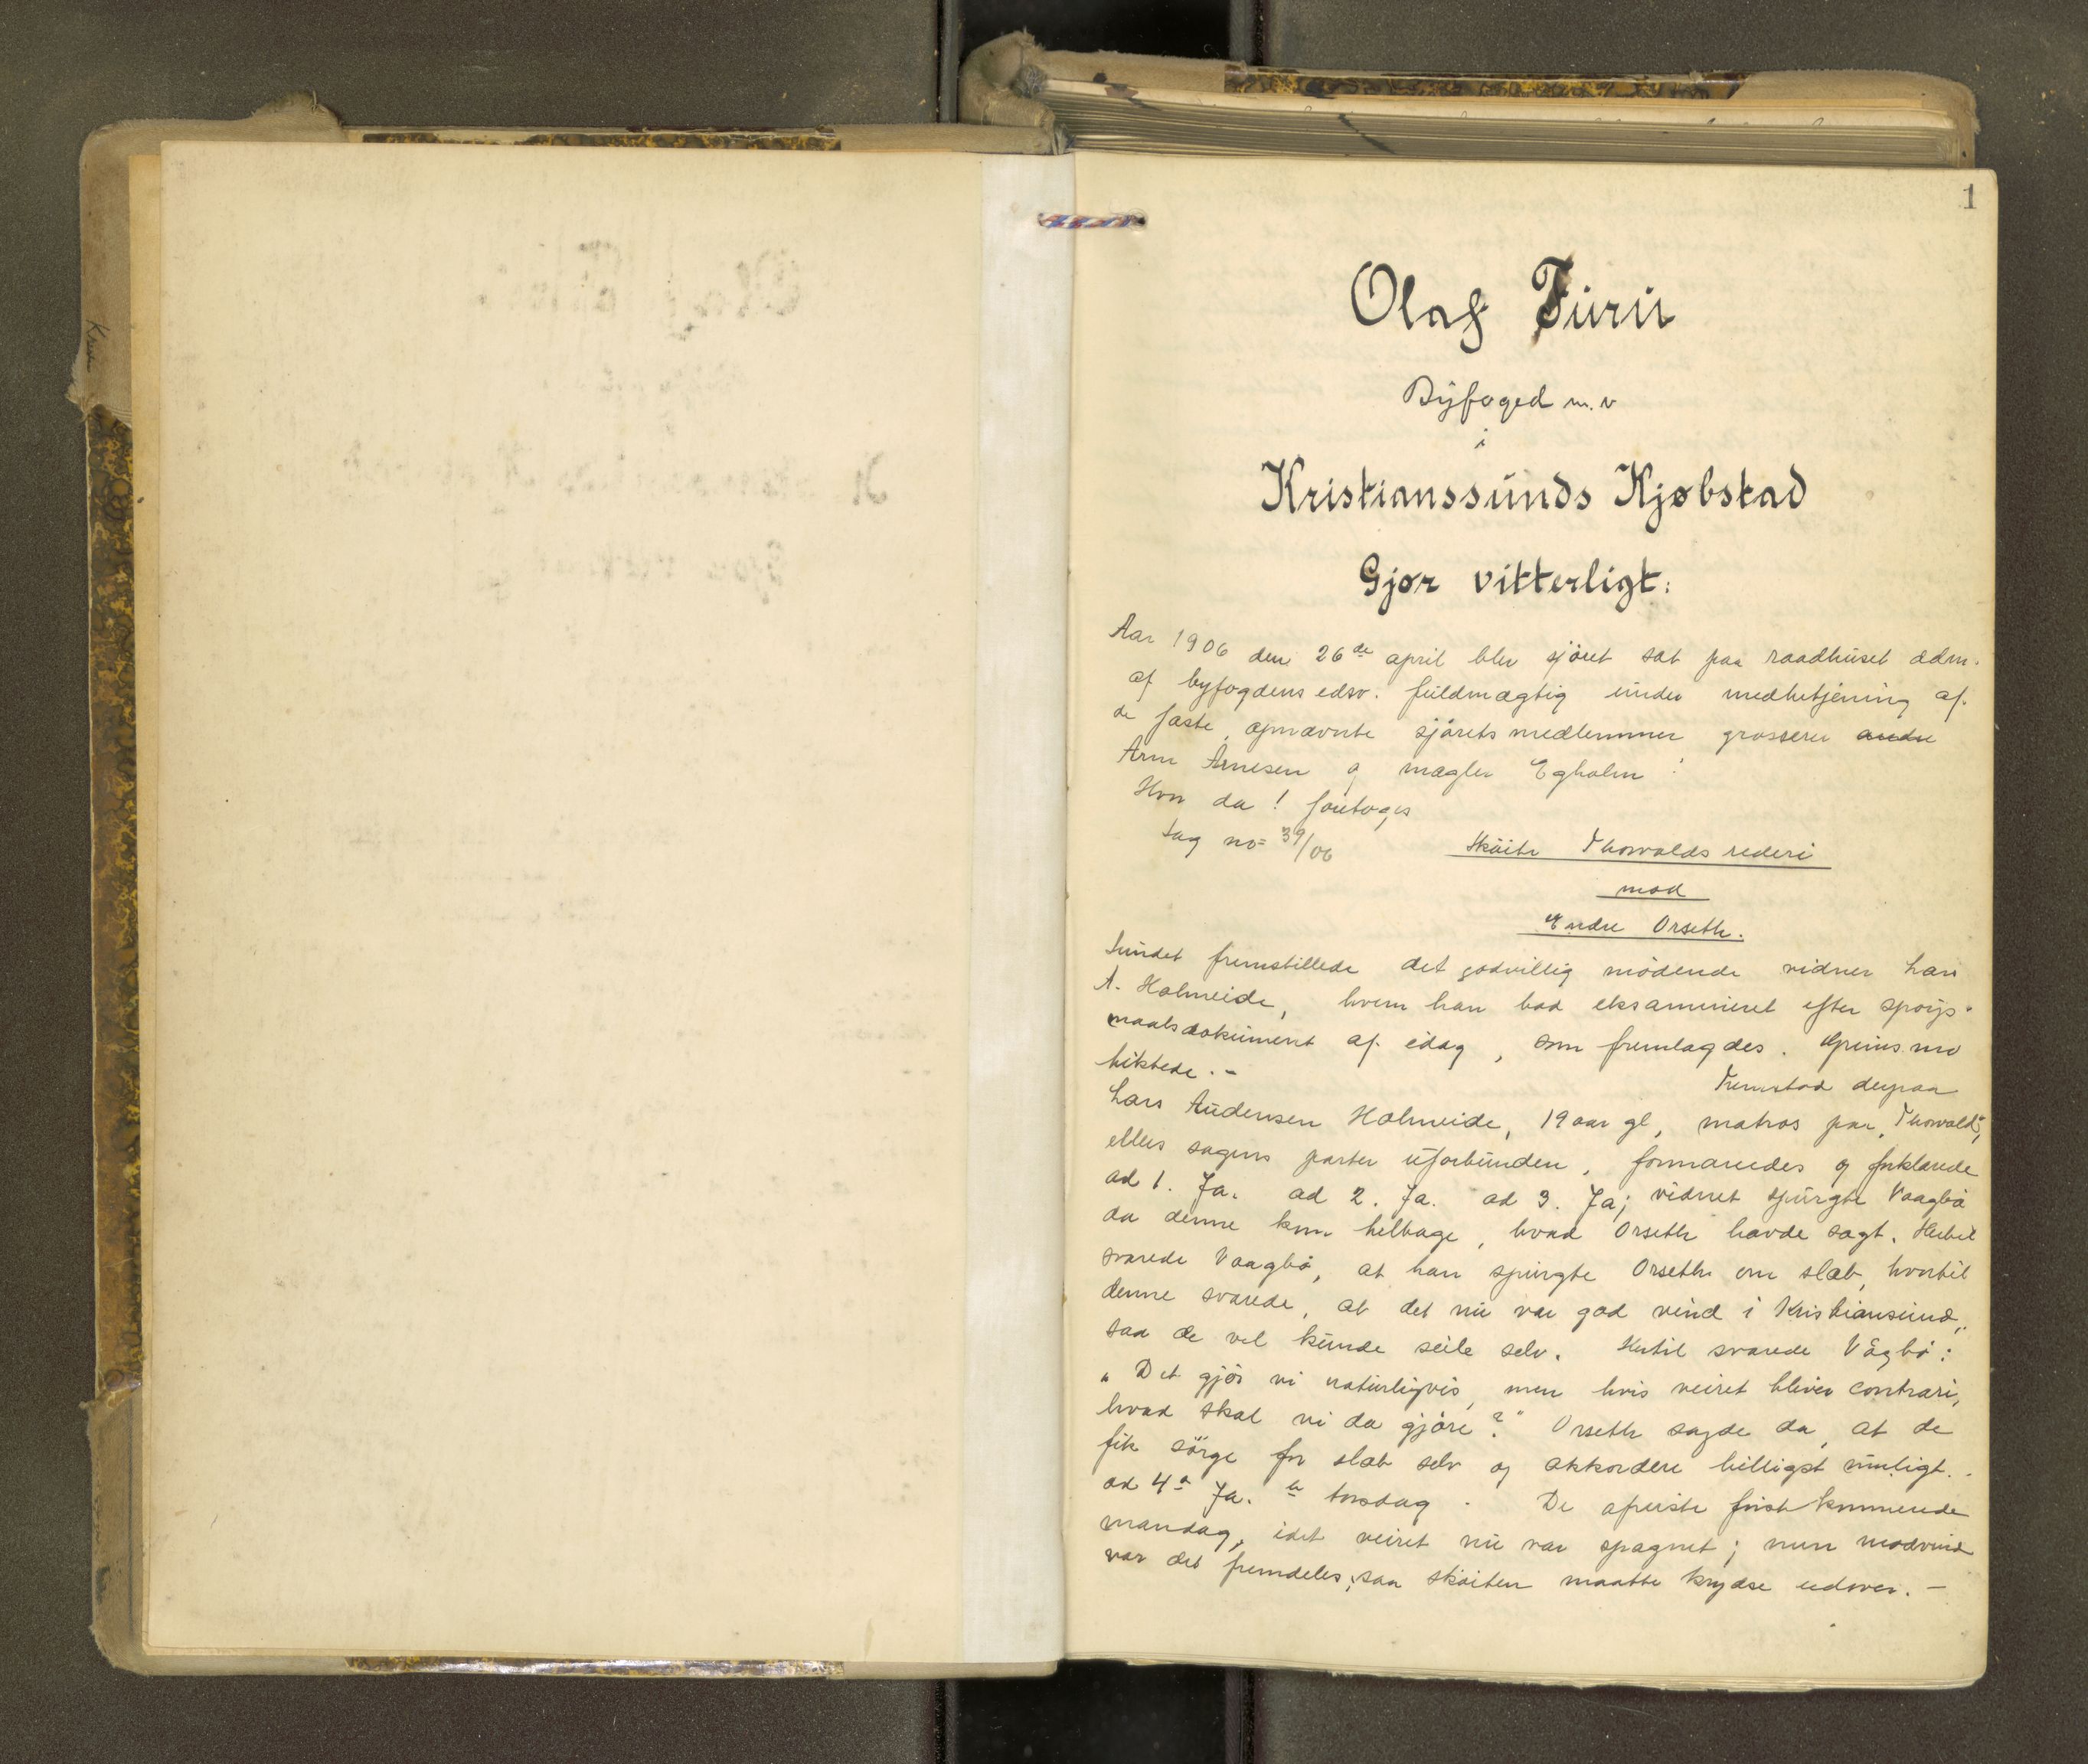 1
Olaf Furu
Byfoged m.v
i
Kristianssunds Kjøbstad
Gjør vitterligt:
Aar 1906 den 26de april blev sjøret sat paa raadhuset adm.
af byfogdens edsv. fuldmægtig under medbetjening af
de faste, opnævnte sjørets medlemmer grosserer andre
Arne Arnesen og mægler Egholm!
Hvor da! foretoges
Sag no 39/06 Skøite Thorvalds rederi
mod
Endre Orseth.
Sundet fremstillede det godvillig mødende vidner Lars
A. Holmeide, hvem han bad eksamineret efter spørgs-
maalsdokument af idag, som fremlagdes.
Fremstod derpaa
Lars Audensen Holmeide, 19 aar gl, matros paa "Thorvald",
ellers sagens parter uforbunden, formanedes og forklarede
ad 1. Ja. ad 2. Ja. ad 3. Ja; vidnet spurgte Vaagbø
da denne kom tilbage, hvad Orseth havde sagt. Hertil
svarede Vaagbø, at han spurgte Orseth om slæb, hvortil
denne svarede, at det nu var god vind i Kristiansund,
saa de vel kunde seile selv. Hertil svarede Vågbø:
"Det gjør vi naturligvis, men hvis veiret bliver contrari,
hvad skal vi da gjøre?" Orseth sagde da, at de
fik sørge for slæb selv og akkordere billigst muligt.
ad 4a Ja. b torsdag. De afreiste først kommende
mandag, idet veiret nu var spagnet; men modvind
var det fremdeles, saa skøiten maatte krydse udover. -